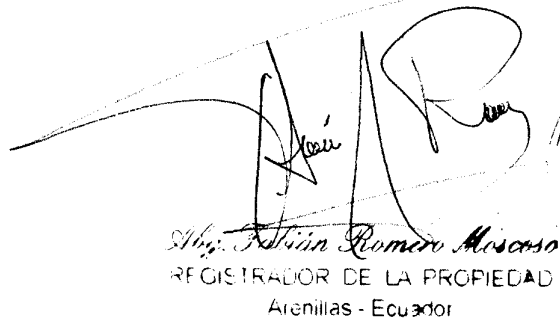 Abg. Fabián Romero Moscoso
REGISTRADOR DE LA PROPIEDAD
Arenillas - Ecuador